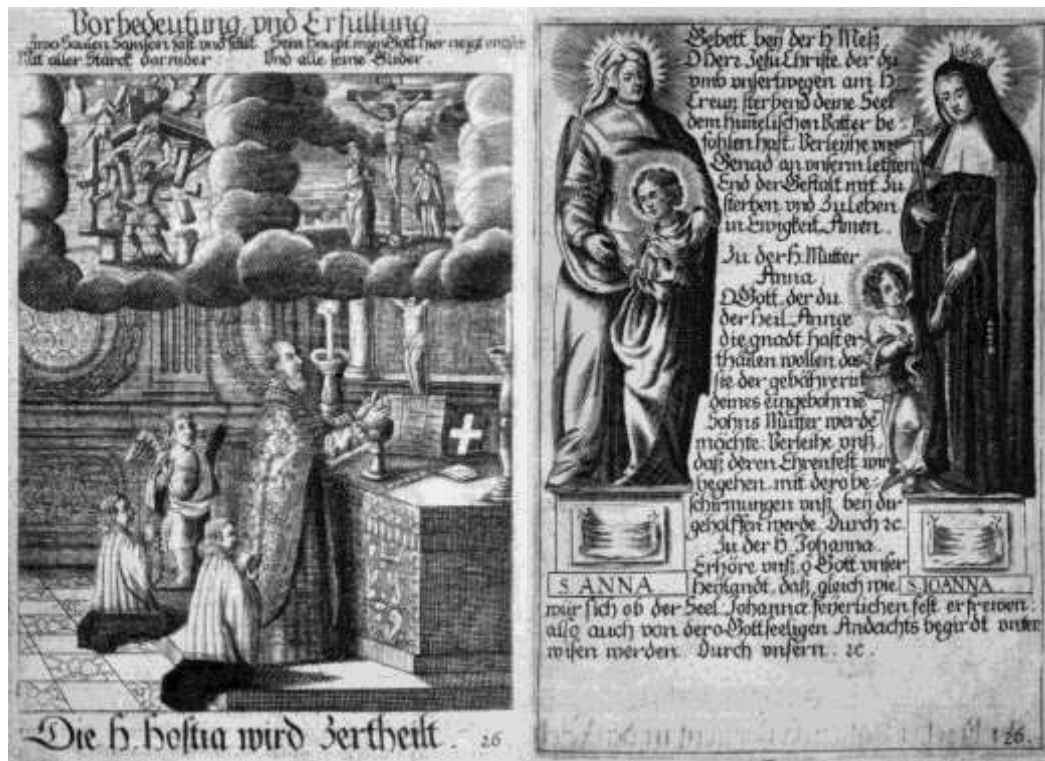 Vorbedeutung vnd Erfüllung
Zwo Saulen Samson fast vnd fällt
Mit aller Starck darnider
Sein Haupt mein Gott hier neygt
Vnd alle seine Glider
Die H. Hostia wird Zertheilt. 26
Gebett bey der H Meß.
O Herr Jesu Christe der du
vmb vnsertwegen am H
Creutz sterbend deine Seel
dem himelischen Vatter be-
fohlen hast. Verleihe vns
Genad an vnserm letsten
End der Gestalt mit Zu
sterben vnd Zu leben
in Ewigkeit Amen.
Zu der H. Mutter
Anna
O Gott der du
der Heil. Annæ
die gnadt hast er-
thailen wollen das
sie der gebährerin
deines eingebohrne
Sohns Mutter werde
möchte. Verleihe vnß
daß deren Ehrenfest wir
begehen mit dero be-
schirmungen vnß bey dir
geholffen werde Durch ꝛc.
Zu der H. Johanna.
Erhöre vnß o Gott vnser
heylandt, daß gleich wie
S. ANNA
S. IOANNA
wür sich ob der Seel Johanna feyerlichen fest erfrewen:
also auch von dero Gottseeligen Andachts begirdt vnter
wisen werden Durch vnsern. ꝛc.
26.